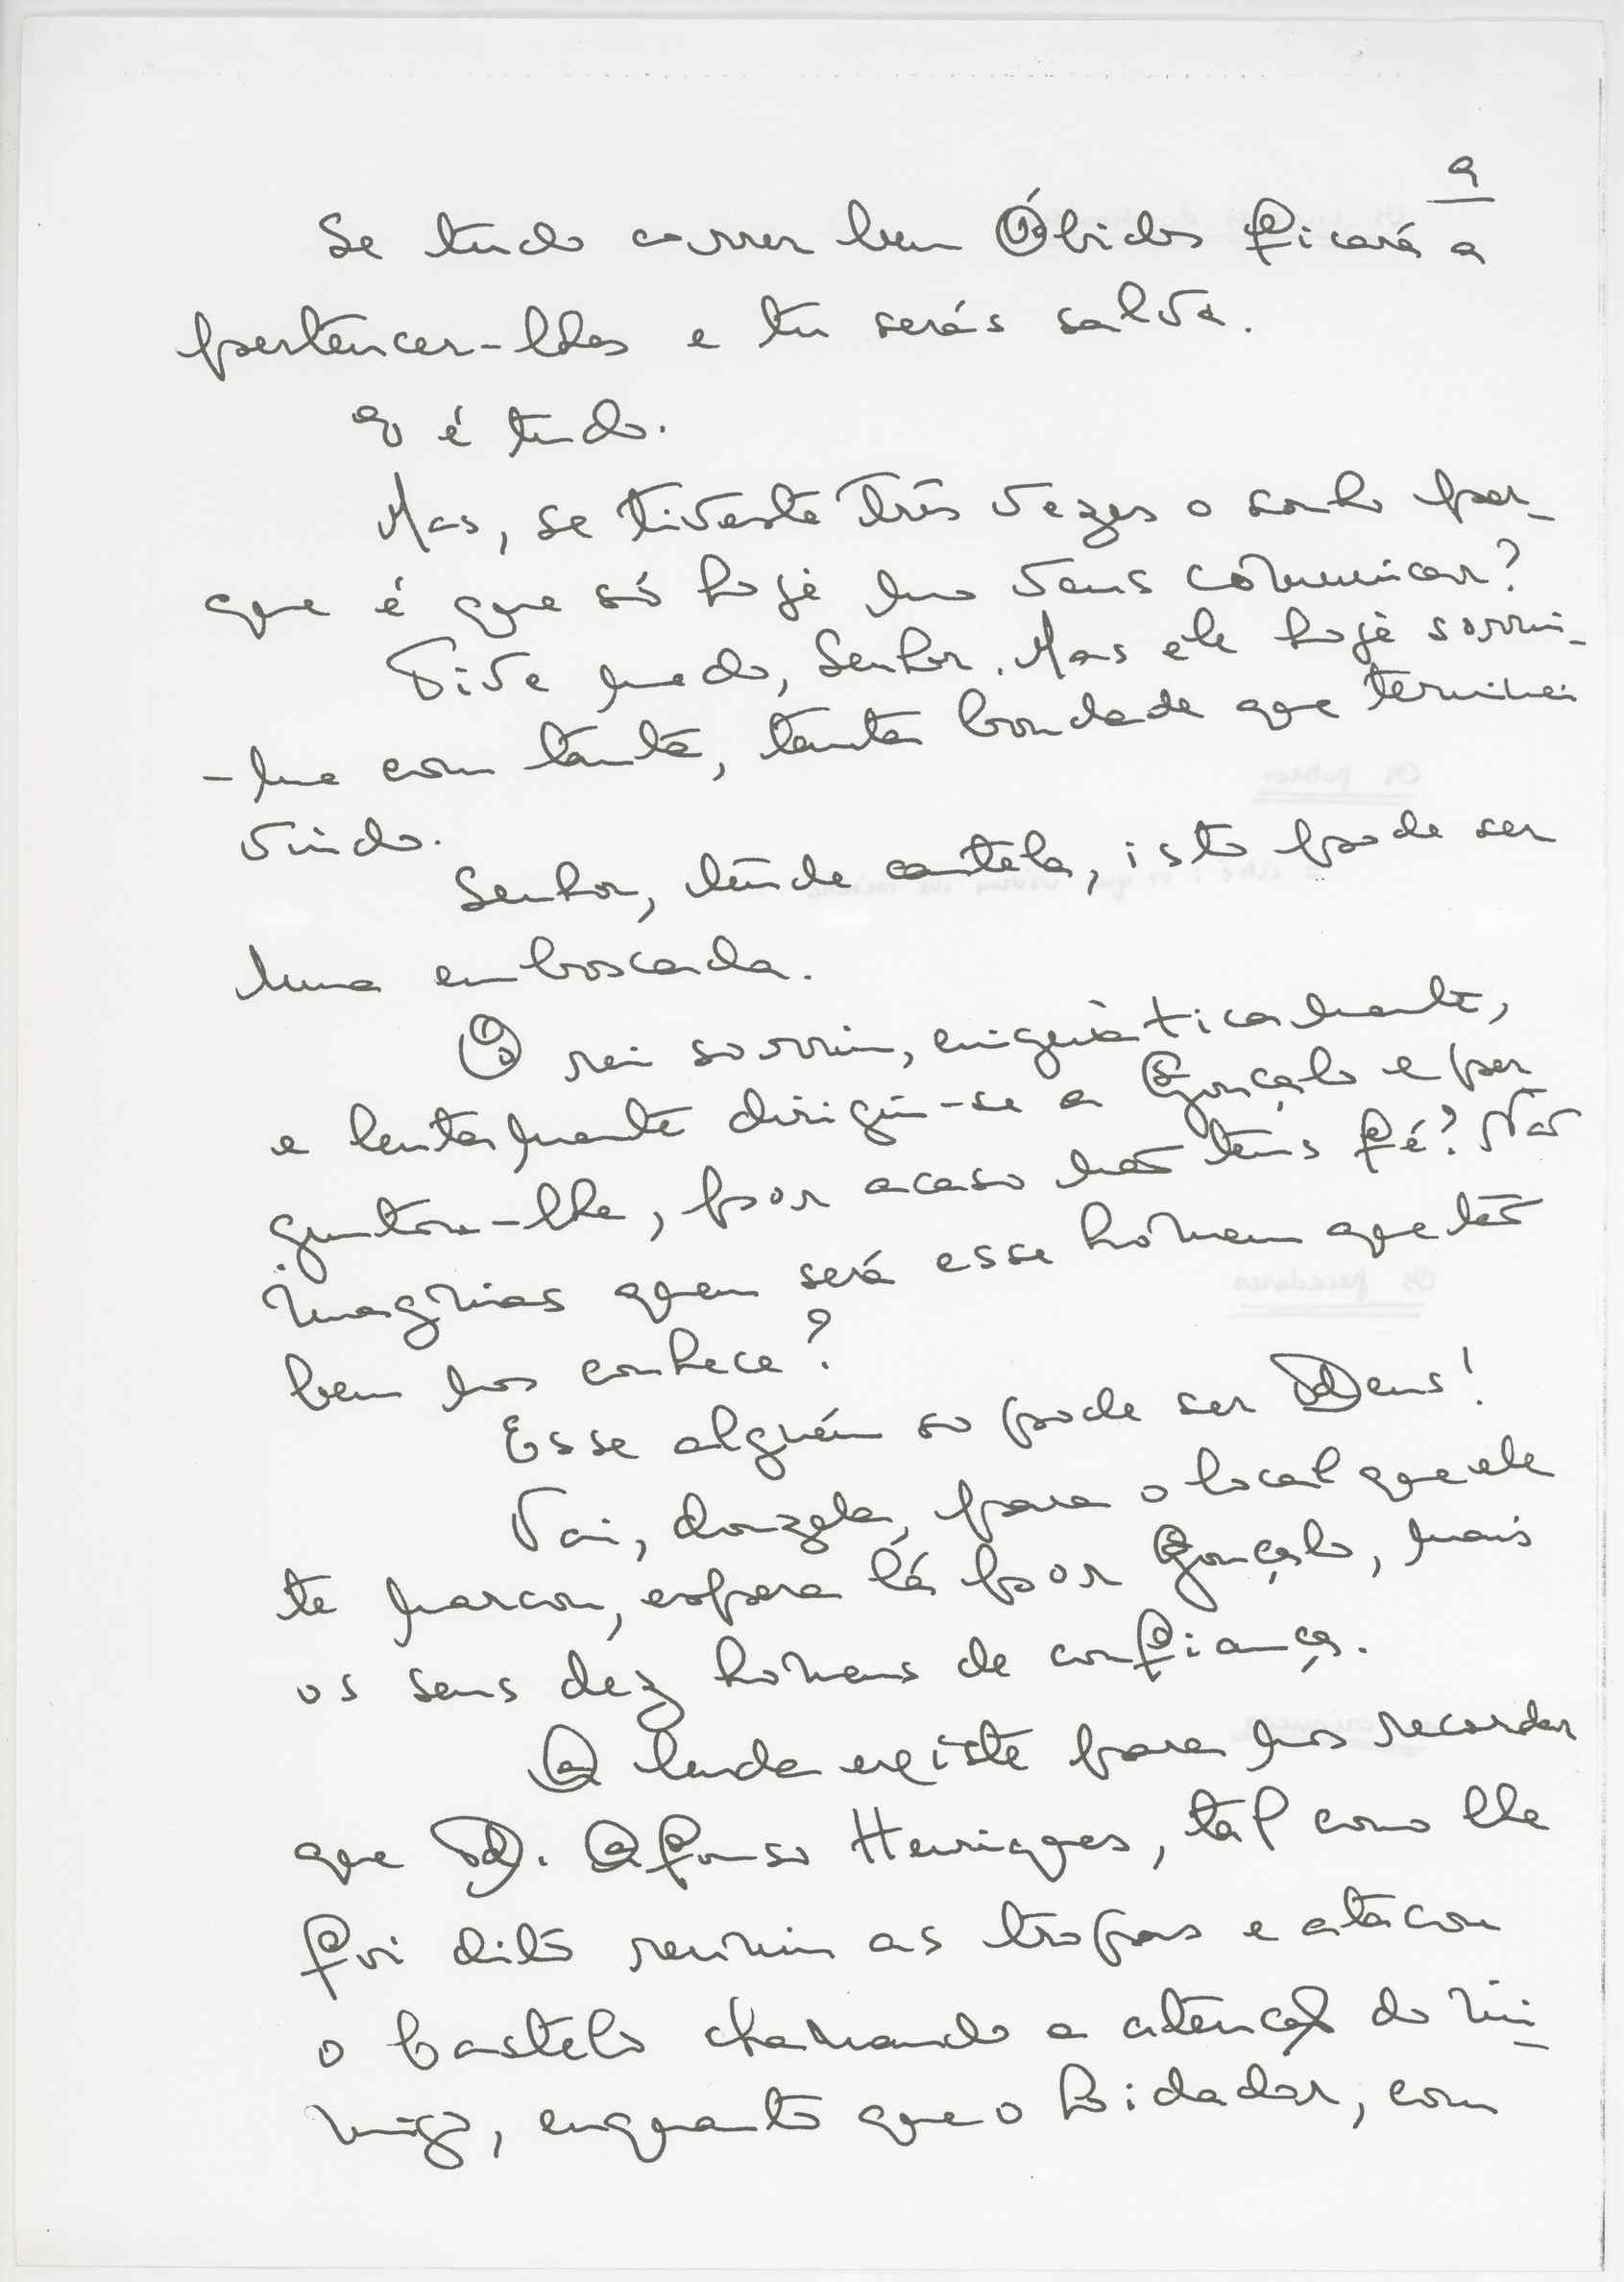 9
Se tudo correr bem Óbidos ficará a
pertencer-lhes e tu serás salva.
é tudo.
Mas, se tiveste três vezes o sonho por-
que é que só hoje mo vens comunicar?
Tive medo, Senhor. Mas ele hoje sorriu-
-me com tanta, tanta bondade que terminei
vindo.
Senhor, tende cautela, isto pode ser
uma emboscada.
O rei sorriu, enigmàticamente,
e lentamente dirigiu-se a Gonçalo e per-
guntou-lhe, por acaso não tens fé? Não
imaginas quem será esse homem que tão
bem nos conhece?
Esse alguém so pode ser Deus!
Vai, donzela, para o local que ele
te marcou, espera lá por Gonçalo, mais
os seus dez homens de confiança.
A lenda existe para nos recordar
que D. Afonso Henriques, tal como lhe
foi dito reuniu as tropas e atacou
o Castelo chamando a atenção do ini-
migo, enquanto que o Lidador, com